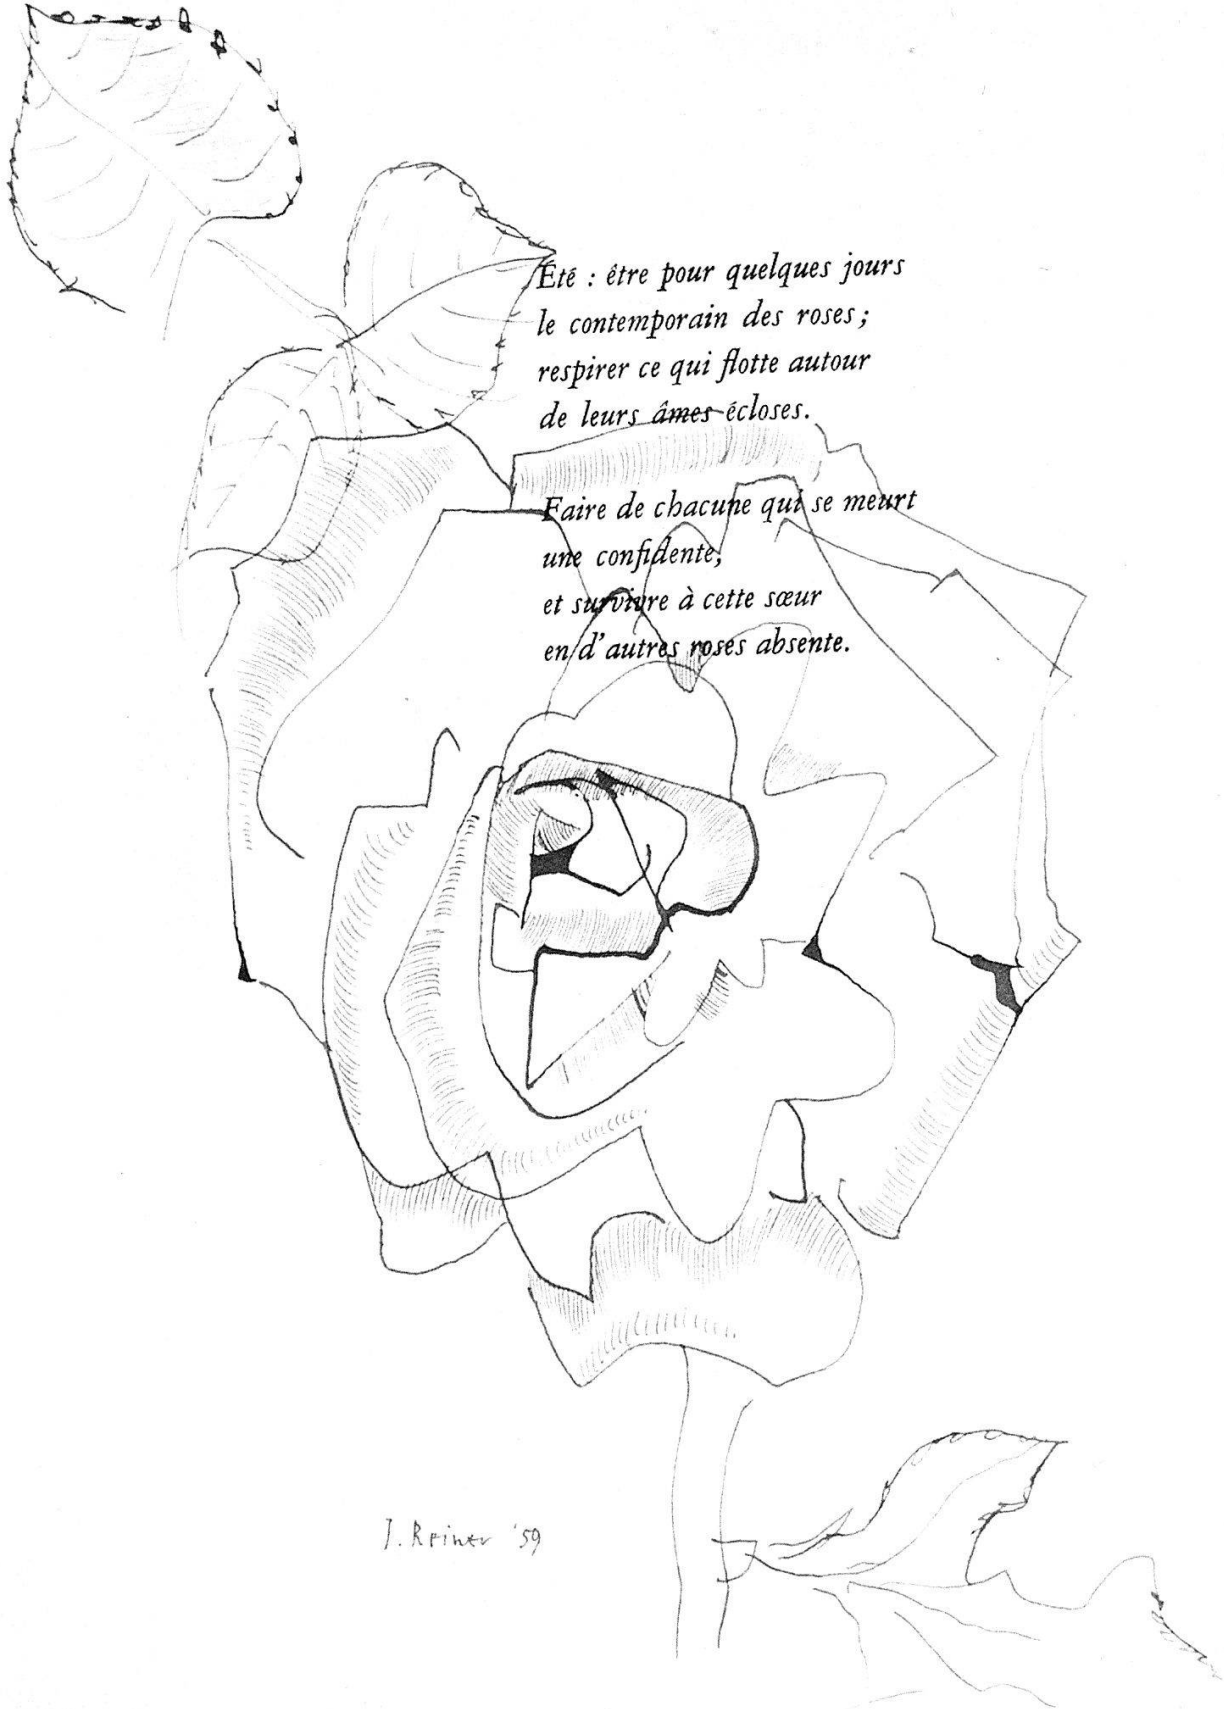 Été : être pour quelques jours
le contemporain des roses ;
respirer ce qui flotte autour
de leurs âmes écloses.
Faire de chacune qui se meurt
une confidente,
et survivre à cette sœur
en d’autres roses absente.
J. Reiner '59